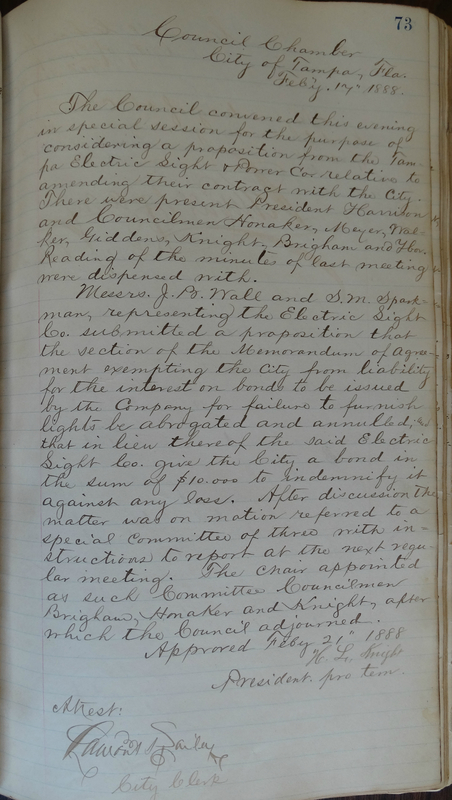 73
Council Chamber
City of Tampa, Fla.
Feb'y. 17" 1888.
The Council convened this evening
in special session for the purpose of
considering a proposition from the Tam-
pa Electric Light & Power Co relative to
amending their contract with the City.
There were present President Harrison
and Councilmen Honaker, Meyer, Wal-
ker, Giddens, Knight, Brigham and
Reading of the minutes of last meeting
were dispensed with.
Messrs. J. B. Wall and S. M. Spark-
man, representing the Electric Light
Co. submitted a proposition that
the section of the Memorandum of Agree-
ment exempting the City from liability
for the interest on bonds to be issued
by the Company for failure to furnish
lights be abrogated and annulled, and
that in lieu thereof the said Electric
Light Co. give the City a bond in
the sum of $10.000 to indemnify it
against any loss. After discussion the
matter was on motion referred to a
special Committee of three with in-
structions to report at the next regu-
lar meeting. The chair appointed
as such Committee Councilmen
Brigham, Honaker and Knight, after
which the Council adjourned.
Approved Feby 21" 1888
Knight
President pro tem.
Attest:
City Clerk